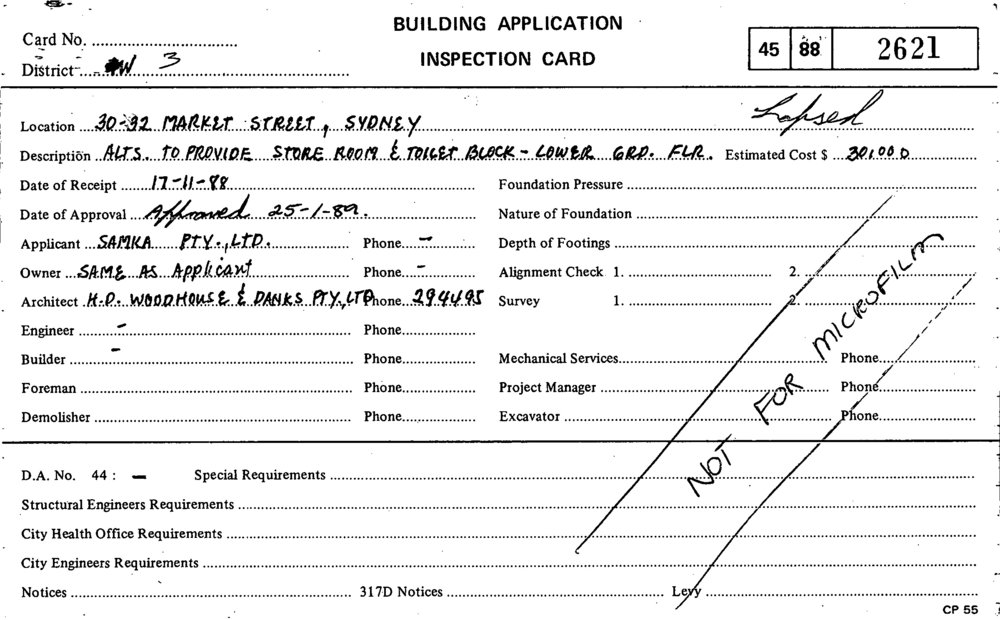 BUILDING APPLICATION
INSPECTION CARD
Card No.
District W 3
45 88 2621
Lapsed
Location 30-32 MARKET STREET, SYDNEY
Description ALTS. TO PROVIDE STORE ROOM & TOILET BLOCK - LOWER GRD. FLR. Estimated Cost $ 30,000
Date of Receipt 17-11-88 Foundation Pressure
Date of Approval Approved 25-1-89. Nature of Foundation
Applicant SAMKA PTY., LTD. Phone - Depth of Footings
Owner SAME AS Applicant Phone - Alignment Check 1. 2.
Architect H.D. WOODHOUSE & DANKS PTY., LTD Phone 294495 Survey 1. 2.
Engineer - Phone
Builder - Phone Mechanical Services Phone
Foreman Phone Project Manager Phone
Demolisher Phone Excavator Phone
NOT FOR MICROFILM
D.A. No. 44 : - Special Requirements
Structural Engineers Requirements
City Health Office Requirements
City Engineers Requirements
Notices 317D Notices Levy
CP 55